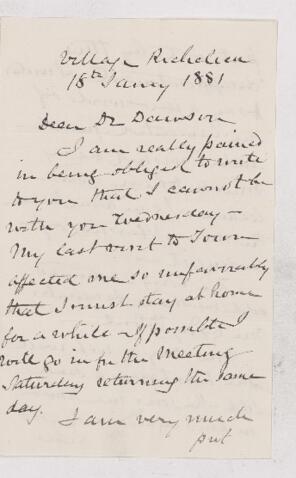 Village Richelieu
18th Jany 1881
Dear Dr Dawson
I am really pained
in being obliged to write
to you that I cannot be
with you Wednesday -
My last visit to Town
affected me so unfavorably
that I must stay at home
for a while - If possible I
will go in for the Meeting
Saturday returning the same
day. I am very much
put